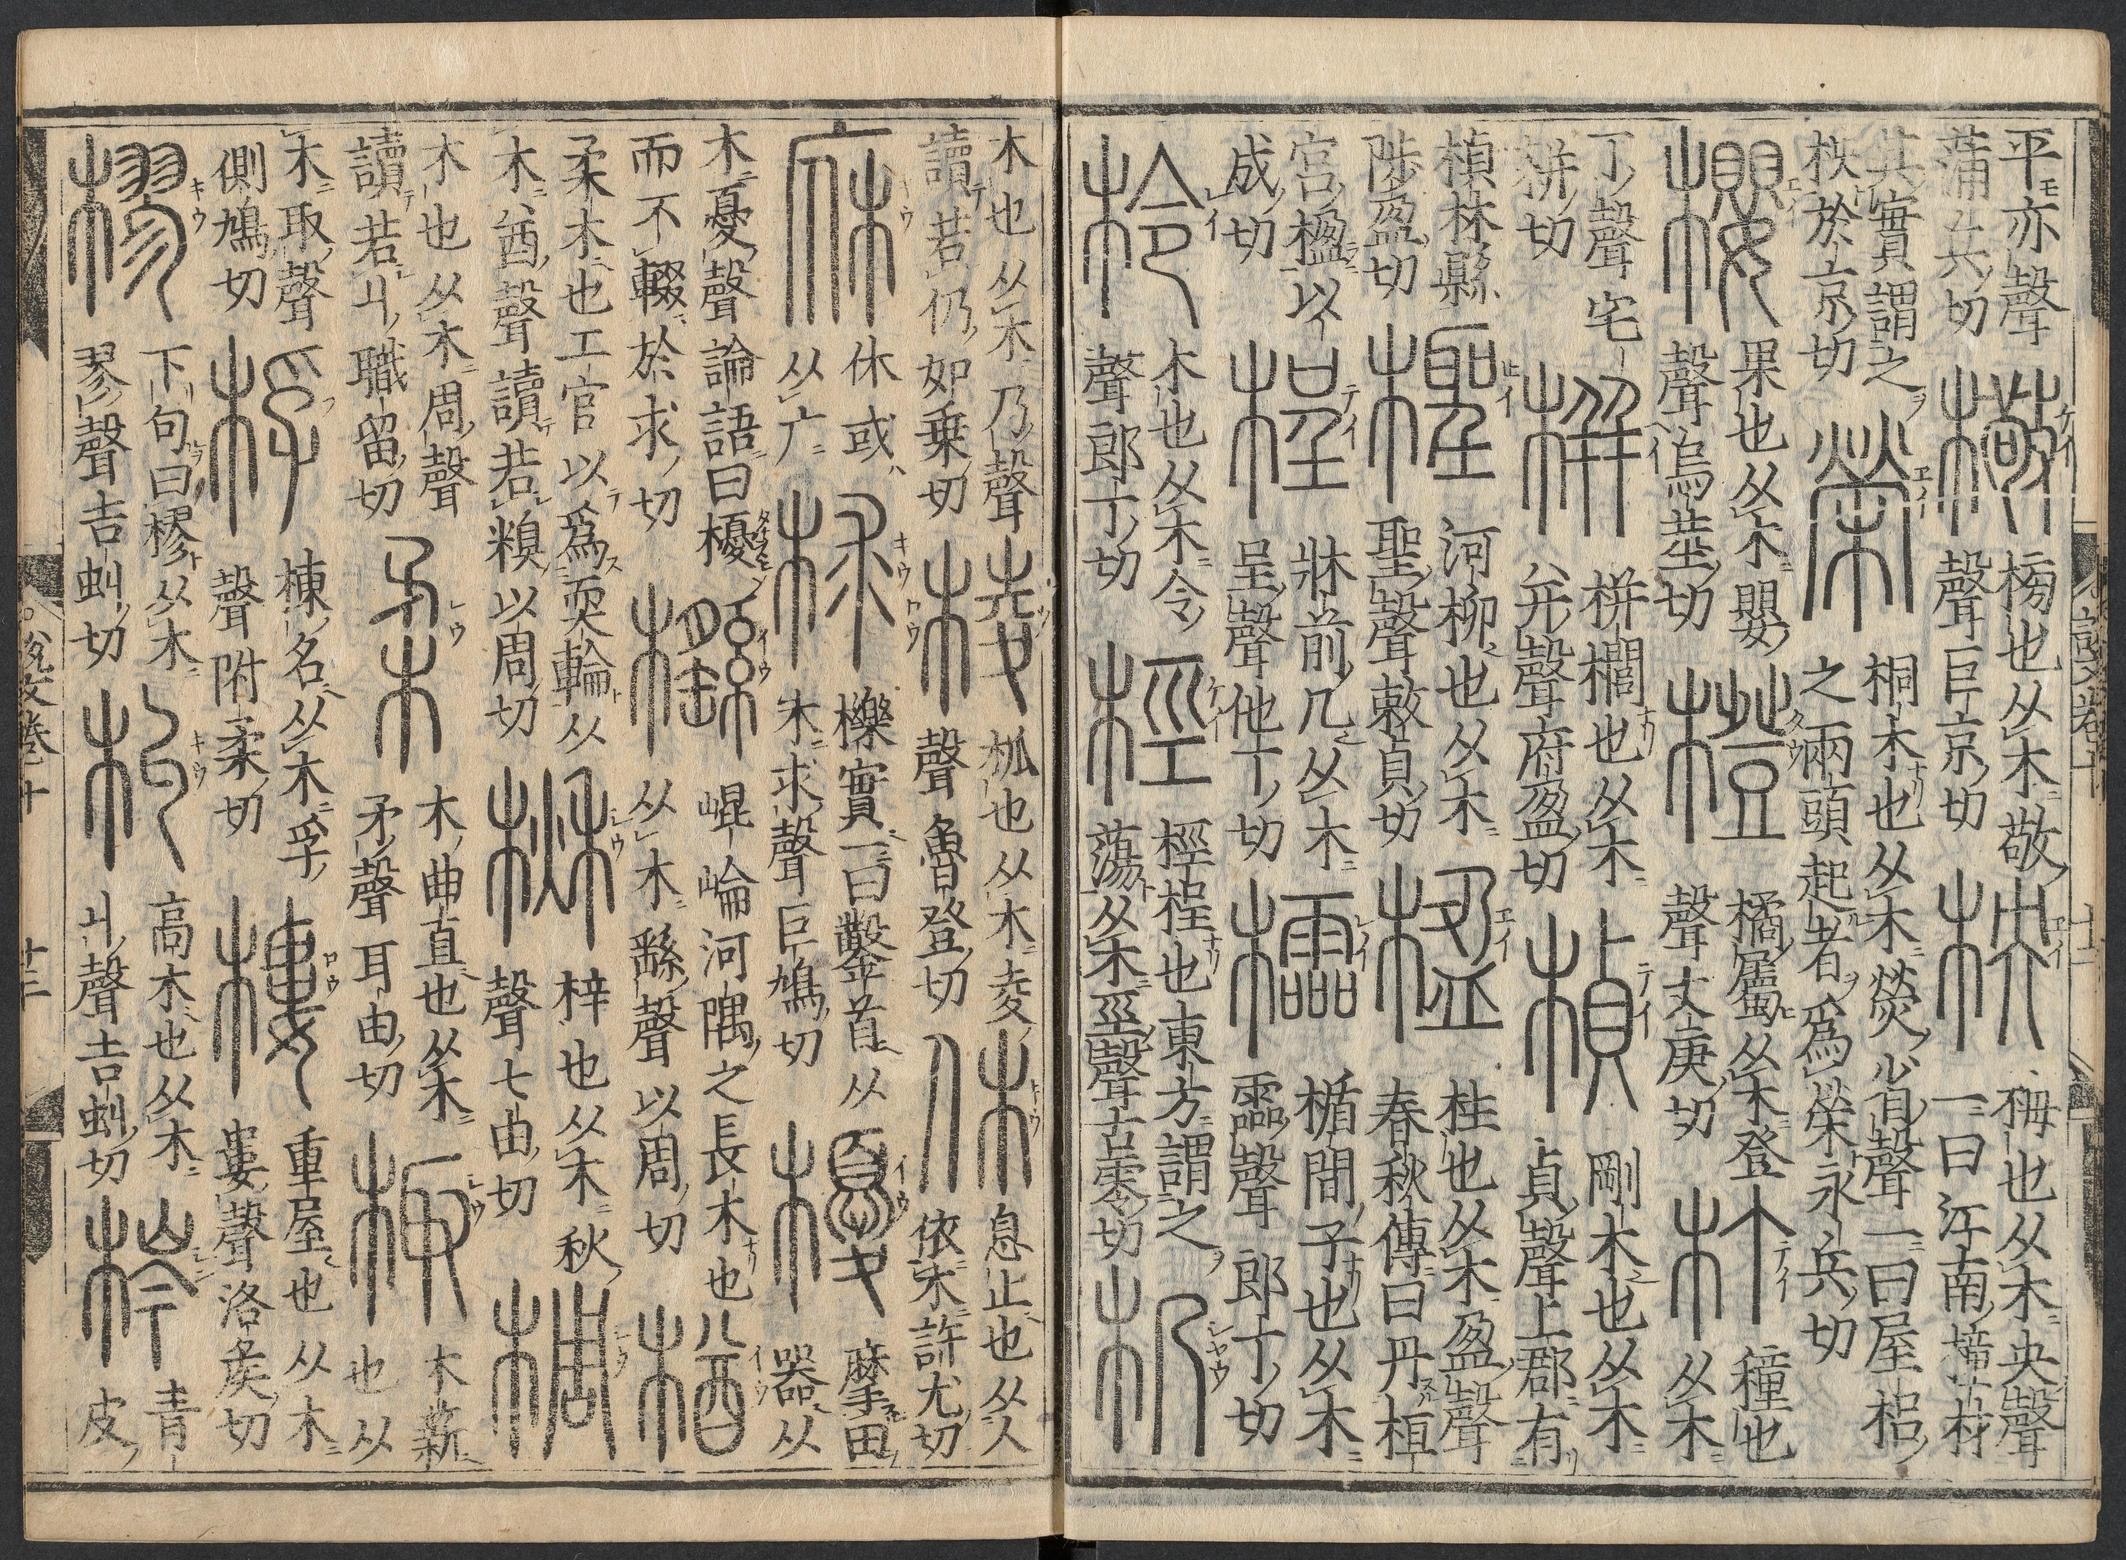 平亦聲蒲兵切 檠 榜也从木敬聲巨京切 柍 梅也从木央聲一曰江南橦材
其實謂之柍於京切 榮 桐木也从木熒省聲一曰屋梠之兩頭起者爲榮永兵切
櫻 果也从木嬰聲烏莖切 橙 橘屬从木登聲丈庚切 朾 橦也从木
丁聲宅耕切 栟 栟櫚也从木幷聲府盈切 楨 剛木也从木貞聲上郡有
楨林縣陟盈切 檉 河柳也从木聖聲敕貞切 楹 柱也从木盈聲春秋傳曰丹桓
宮楹以成切 桯 牀前几从木呈聲他丁切 櫺 楯間子也从木霝聲郎丁切
柃 木也从木令聲郎丁切 桱 桱桯也東方謂之蕩从木巠聲古零切
說文卷十 十一
木也从木乃聲讀若仍如乘切 棱 柧也从木夌聲魯登切 休 息止也从人依木許尤切
庥 休或从广 梂 櫟實一曰鑿首从木求聲巨鳩切 櫌 摩田器从
木憂聲論語曰櫌而不輟於求切 櫾 崐崘河隅之長木也从木繇聲以周切 楢
柔木也工官以爲耎輪从木酋聲讀若糗以周切 楸 梓也从木秋聲七由切 椆
木也从木周聲讀若丩職留切 柔 木曲直也从木矛聲耳由切 棷 木薪也从
木取聲側鳩切 桴 棟名从木孚聲附柔切 樓 重屋也从木婁聲洛矦切
樛 下句曰樛从木翏聲吉虯切 朻 高木也从木丩聲吉虯切 梣 青皮
說文卷十 十二